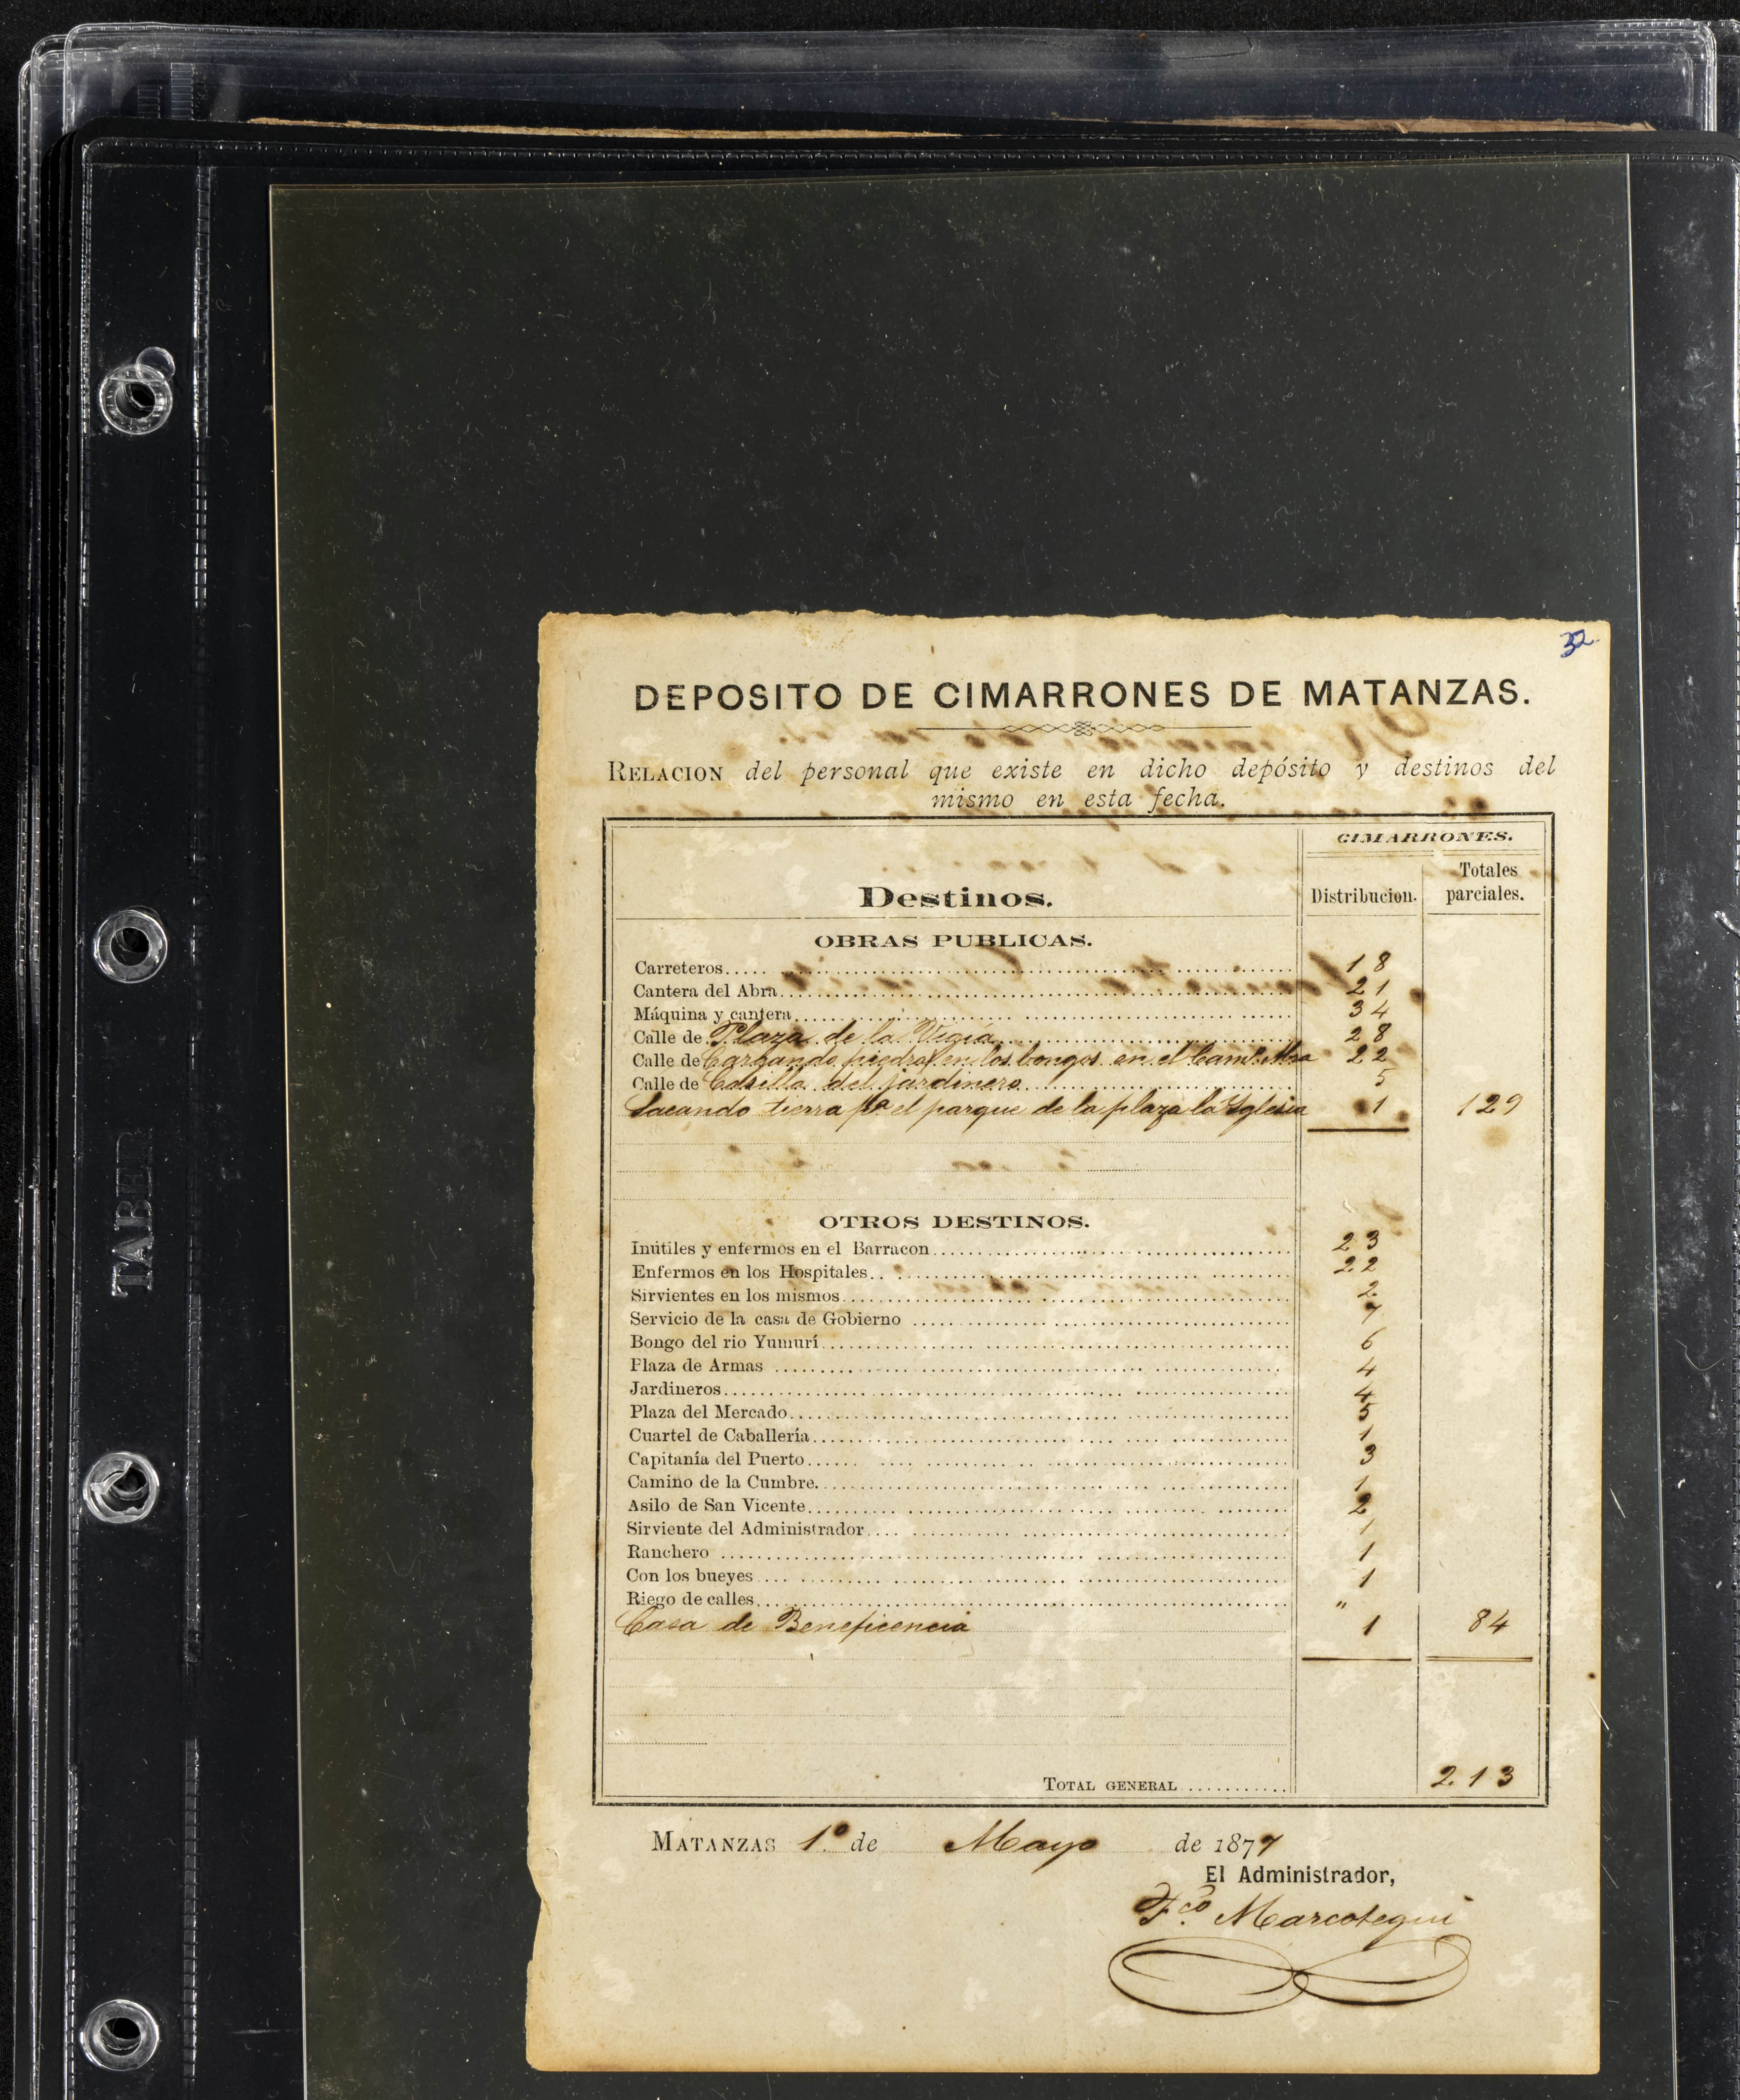 32
DEPOSITO DE CIMARRONES DE MATANZAS.
RELACION del personal que existe en dicho depósito y destinos del
mismo en esta fecha.
CIMARRONES.
Destinos.
Distribucion.
Totales
parciales.
OBRAS PUBLICAS.
Carreteros 18
Cantera del Abra 21
Máquina y cantera 34
Calle de Plaza de la Vigía 28
Calle de Cargando piedras en los bongos en el 22
Calle de Casilla del jardinero 5
Sacando tierra pa el parque de la plaza la Yglesia 1 129
OTROS DESTINOS.
Inútiles y enfermos en el Barracon 23
Enfermos en los Hospitales 22
Sirvientes en los mismos 2
Servicio de la casa de Gobierno 7
Bongo del rio Yumurí 6
Plaza de Armas 4
Jardineros 4
Plaza del Mercado 5
Cuartel de Caballería 1
Capitanía del Puerto 3
Camino de la Cumbre. 1
Asilo de San Vicente 2
Sirviente del Administrador 1
Ranchero 1
Con los bueyes 1
Riego de calles "
Casa de Beneficencia 1 84
TOTAL GENERAL 213
MATANZAS 1º de Mayo de 1877
El Administrador,
Fco. Marcotegui
TABER